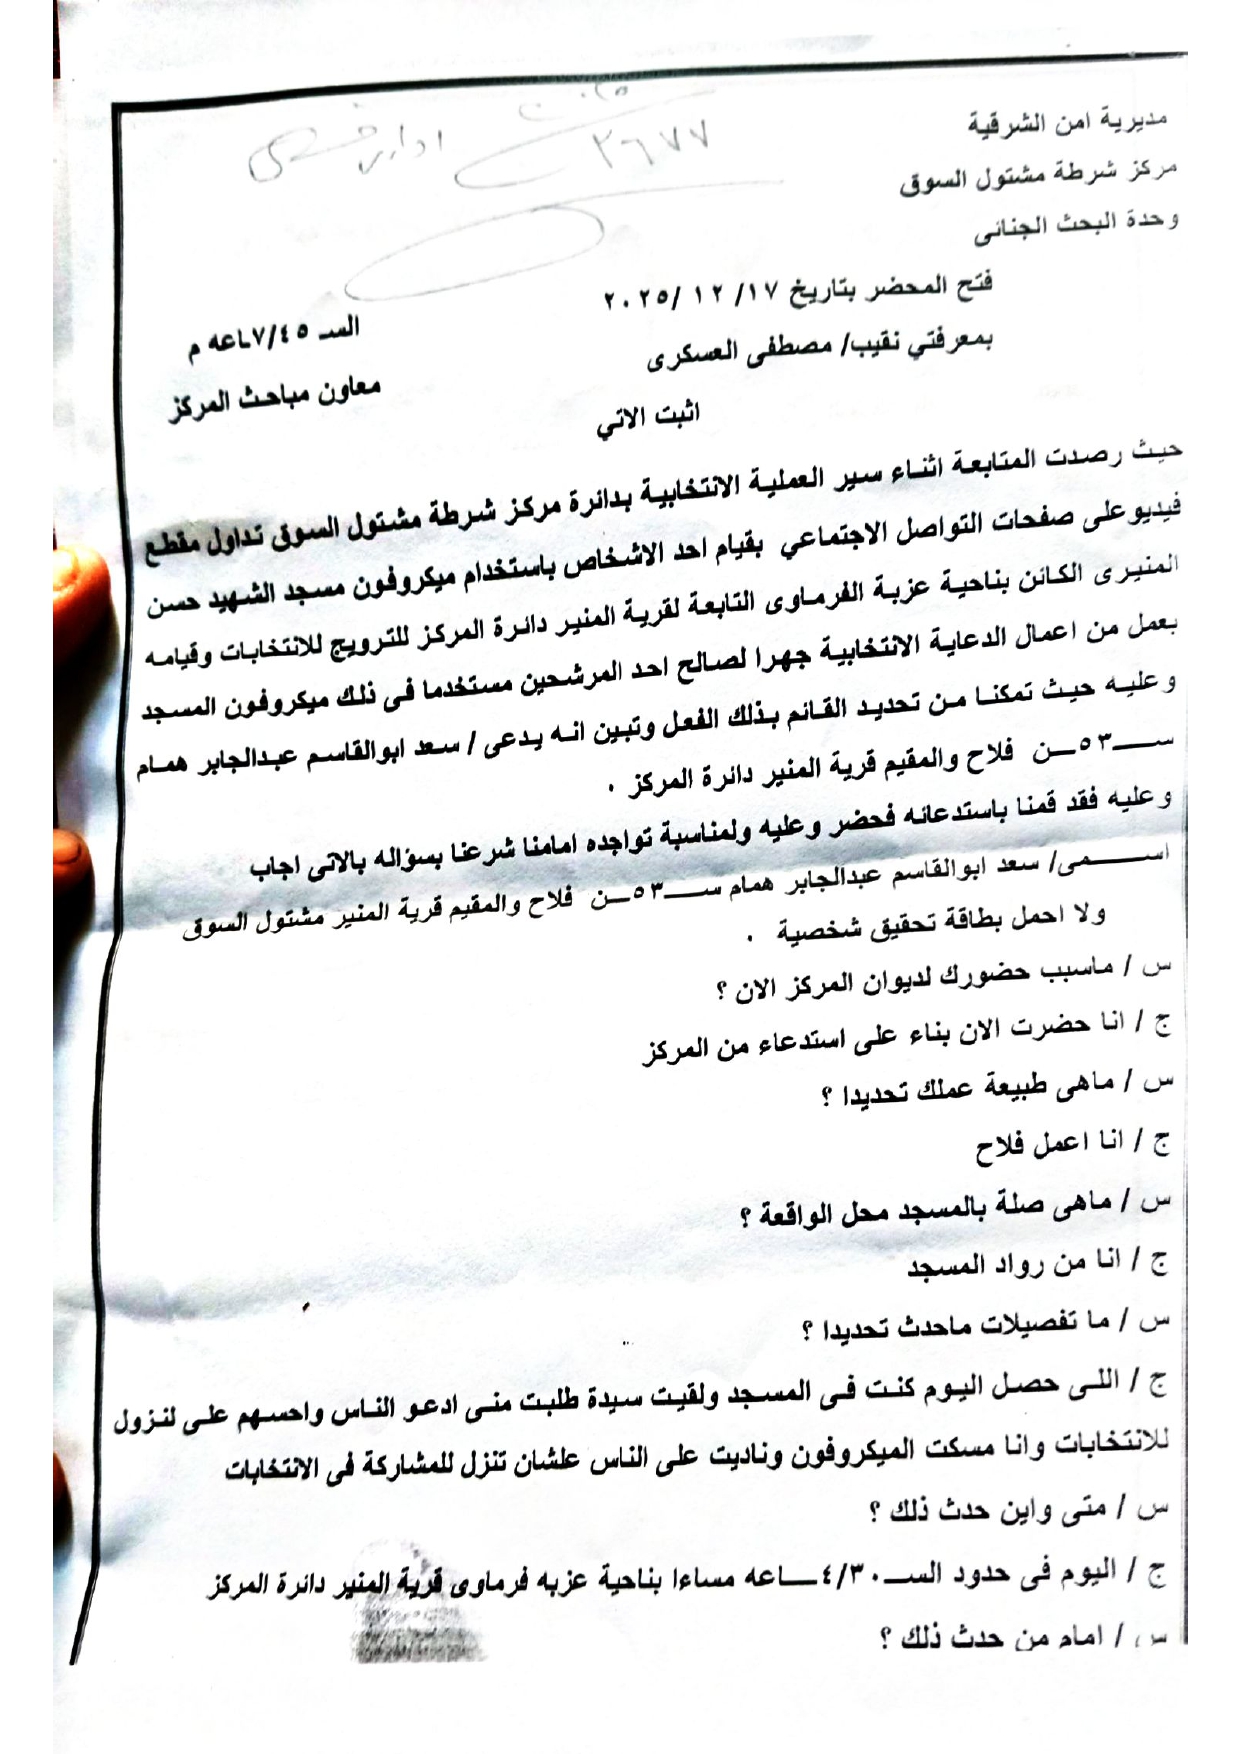 مديرية امن الشرقية
٣٦٧٧
مركز شرطة مشتول السوق
وحدة البحث الجنائى
فتح المحضر بتاريخ ١٧/ ١٢ /٢٠٢٥
الســ ٧/٤٥ـاعه م
بمعرفتي نقيب/ مصطفى العسكرى
معاون مباحث المركز
اثبت الاتي
حيث رصدت المتابعة اثناء سير العملية الانتخابية بدائرة مركز شرطة مشتول السوق تداول مقطع
فيديو على صفحات التواصل الاجتماعي بقيام احد الاشخاص باستخدام ميكروفون مسجد الشهيد حسن
المنيرى الكائن بناحية عزبة الفرماوى التابعة لقرية المنير دائرة المركز للترويج للانتخابات وقيامه
بعمل من اعمال الدعاية الانتخابية جهرا لصالح احد المرشحين مستخدما فى ذلك ميكروفون المسجد
وعليه حيث تمكنا من تحديد القائم بذلك الفعل وتبين انه يدعى / سعد ابوالقاسم عبدالجابر همام
ســـ٥٣ــن فلاح والمقيم قرية المنير دائرة المركز .
وعليه فقد قمنا باستدعائه فحضر وعليه ولمناسبة تواجده امامنا شرعنا بسؤاله بالاتى اجاب
اســـــمى/ سعد ابوالقاسم عبدالجابر همام ســـ٥٣ــن فلاح والمقيم قرية المنير مشتول السوق
ولا احمل بطاقة تحقيق شخصية .
س / ماسبب حضورك لديوان المركز الان ؟
ج / انا حضرت الان بناء على استدعاء من المركز
س / ماهى طبيعة عملك تحديدا ؟
ج / انا اعمل فلاح
س / ماهى صلة بالمسجد محل الواقعة ؟
ج / انا من رواد المسجد
س / ما تفصيلات ماحدث تحديدا ؟
ج / اللى حصل اليوم كنت فى المسجد ولقيت سيدة طلبت منى ادعو الناس واحسهم على لنزول
للانتخابات وانا مسكت الميكروفون وناديت على الناس علشان تنزل للمشاركة فى الانتخابات
س / متى واين حدث ذلك ؟
ج / اليوم فى حدود الســـ٤/٣٠ــاعه مساءا بناحية عزبه فرماوى قرية المنير دائرة المركز
س / امام من حدث ذلك ؟